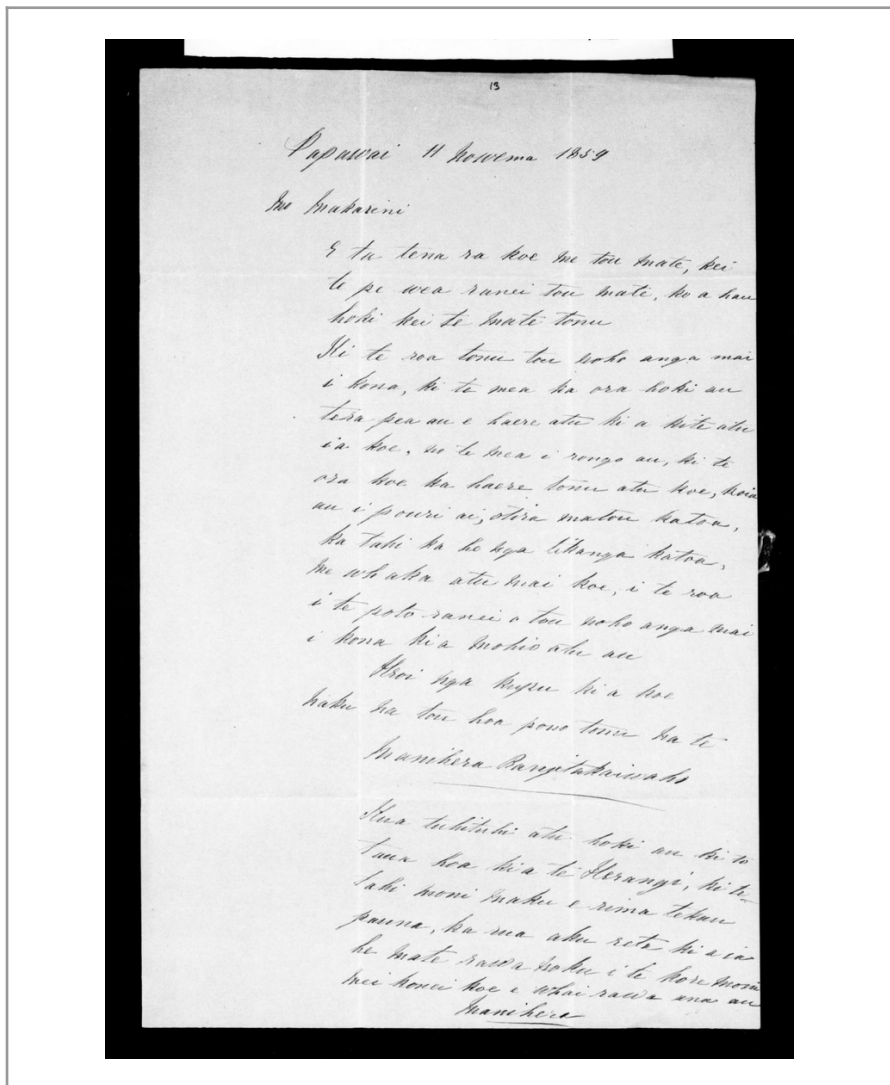 13
Papawai 11 Nowema 1859
Mo Makarini
E ta tena ra koe me tou mate, kei
te pe wea ranei tou mate, ko a hau
hoki kei te mate tonu
Ki te roa tonu tou noho anga mai
i kona, ki te mea ka ora hoki au
tera pea au e haere atu ki a kite atu
ia koe, no te mea i rongo au, ki te
ora koe ka haere tonu atu koe, koia
au i pouri ai, otira matou katoa,
ka tahi ka he nga tikanga katoa,
me whaka atu mai koe, i te roa
i te poto ranei o tou noho anga mai
i kona kia mohio atu au
Heoi nga kupu ki a koe
naku na tou hoa pono tonu na te
Manihera Rangitakaiwaho
Kua tuhituhi atu hoki au ki to
taua hoa kia te Herangi, ki te
tahi moni maku e rima tekau
pauna, ka rua aku reta ki a ia
he mate rawa noku i te kore moni
mei konei koe e whai rawa ana au
Manihera